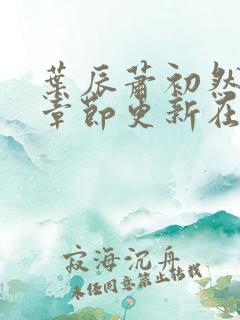 葉辰蕭初然
章節更新在
寂海沉舟
未经同意禁止转载